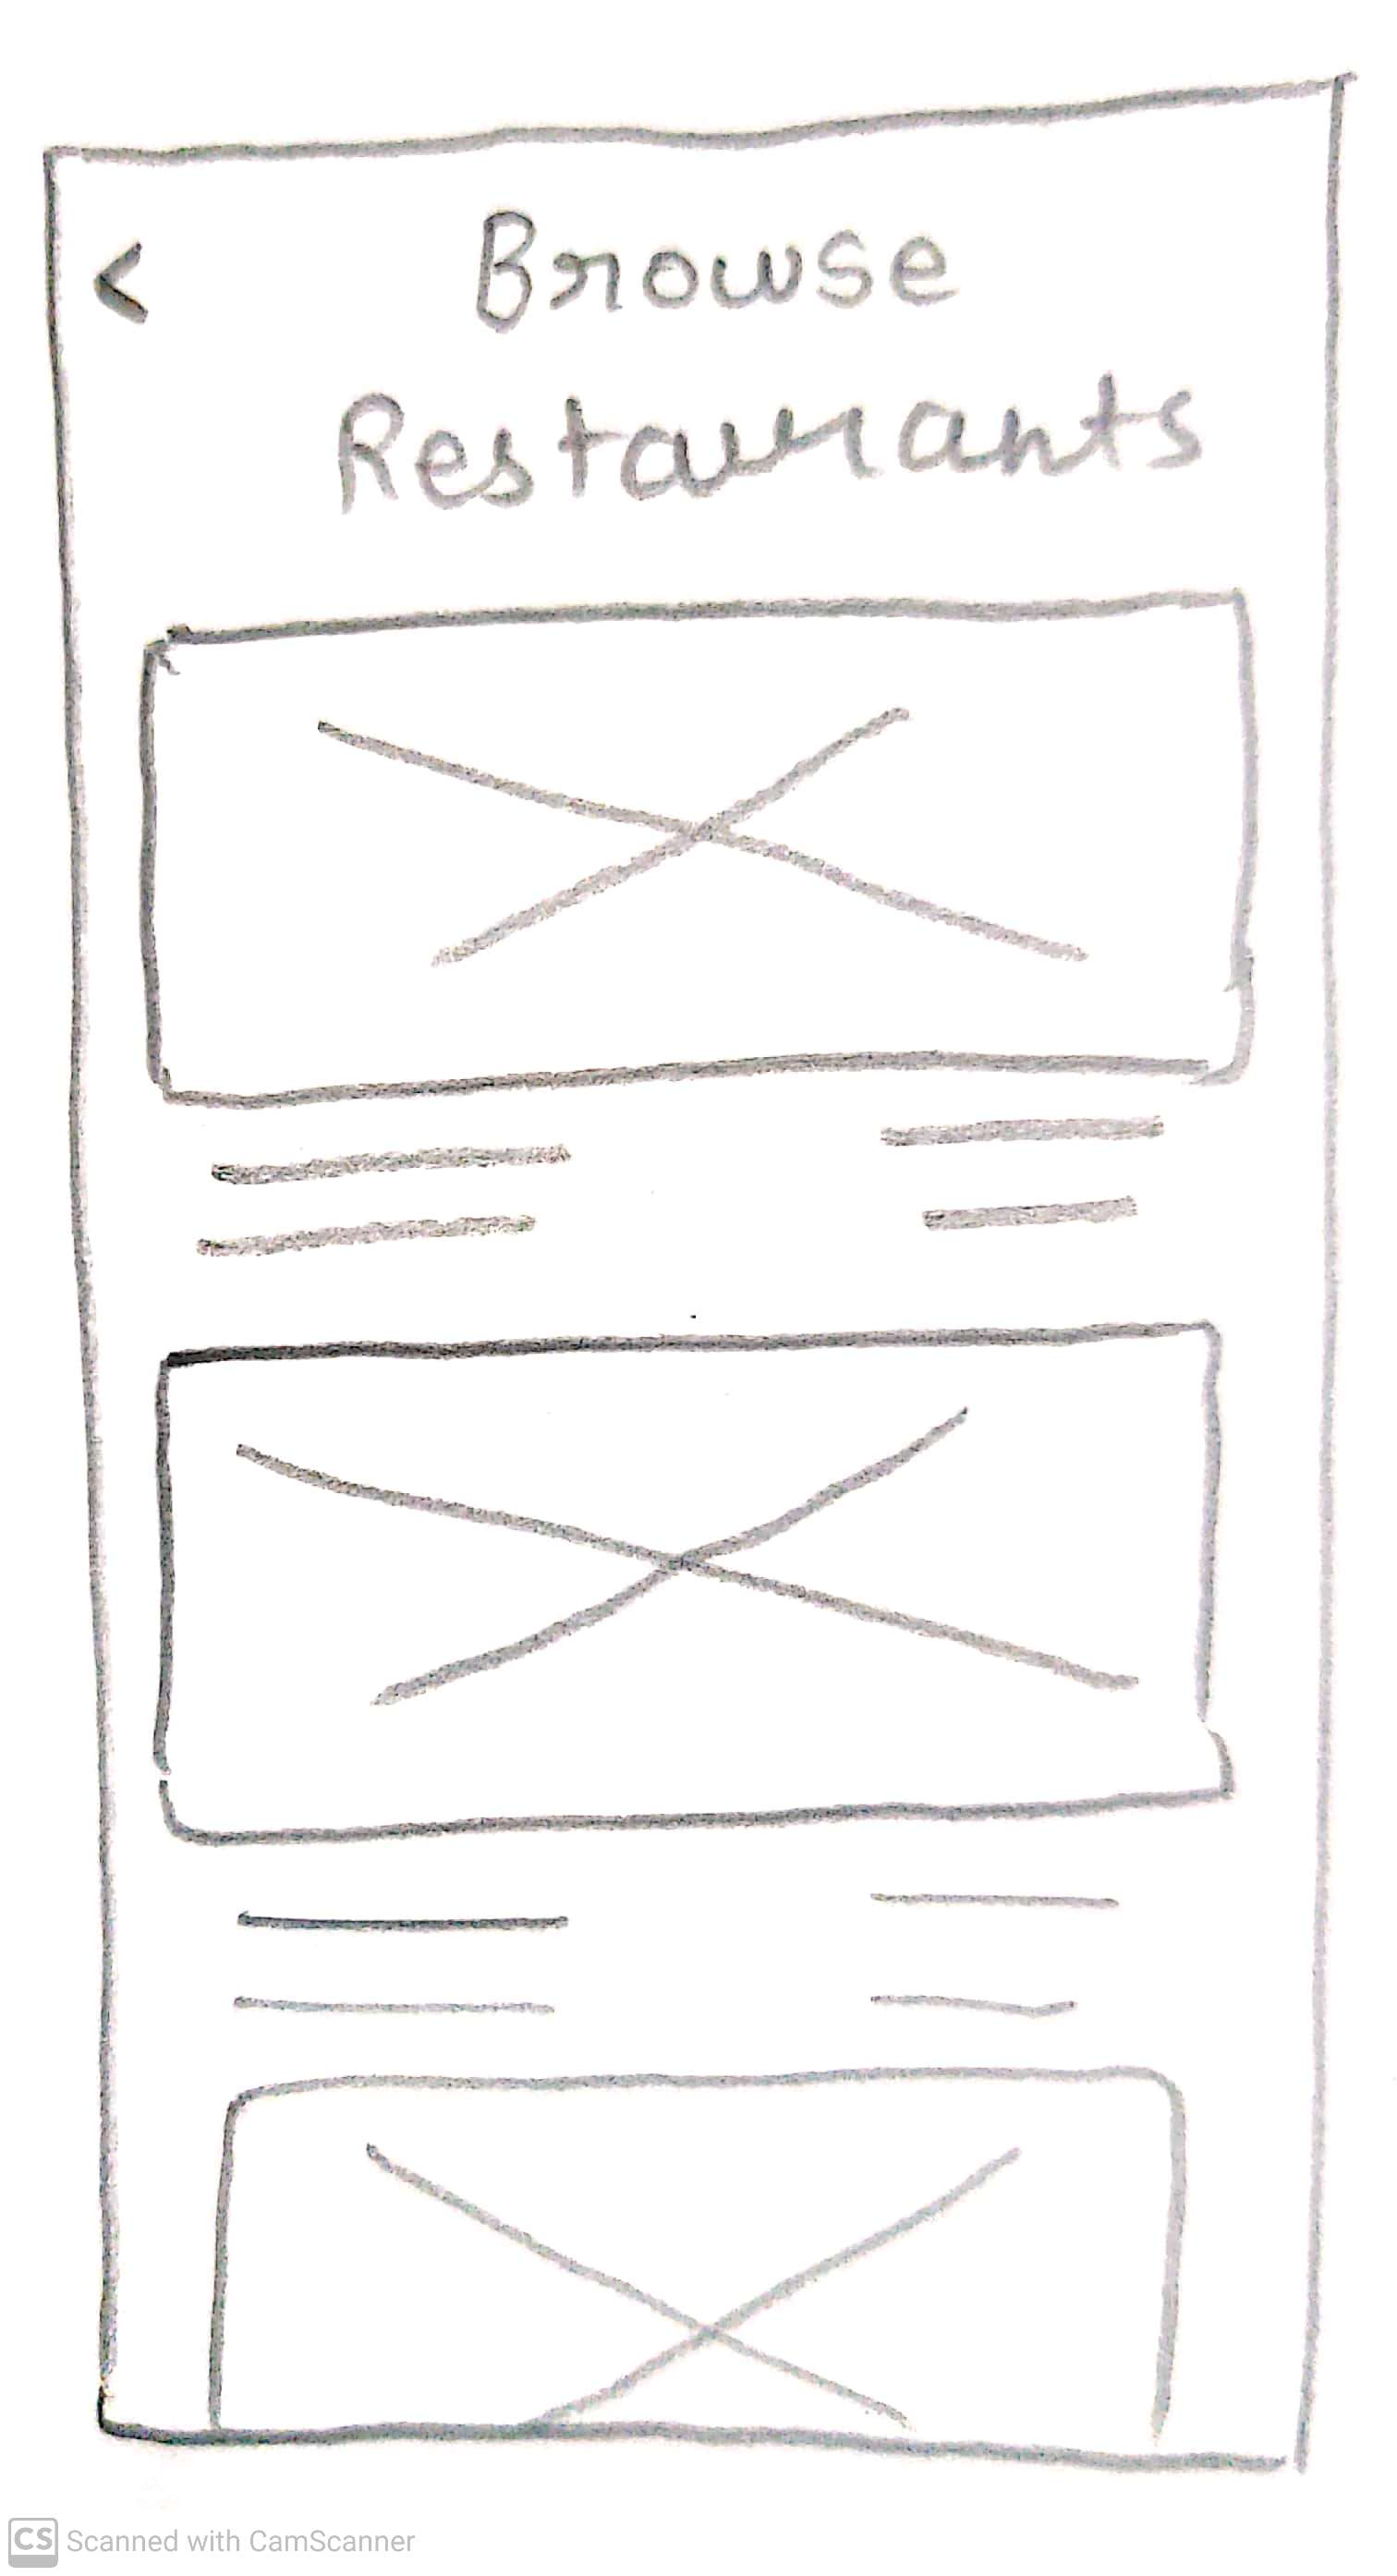 <
Browse
Restaurants
CS Scanned with CamScanner